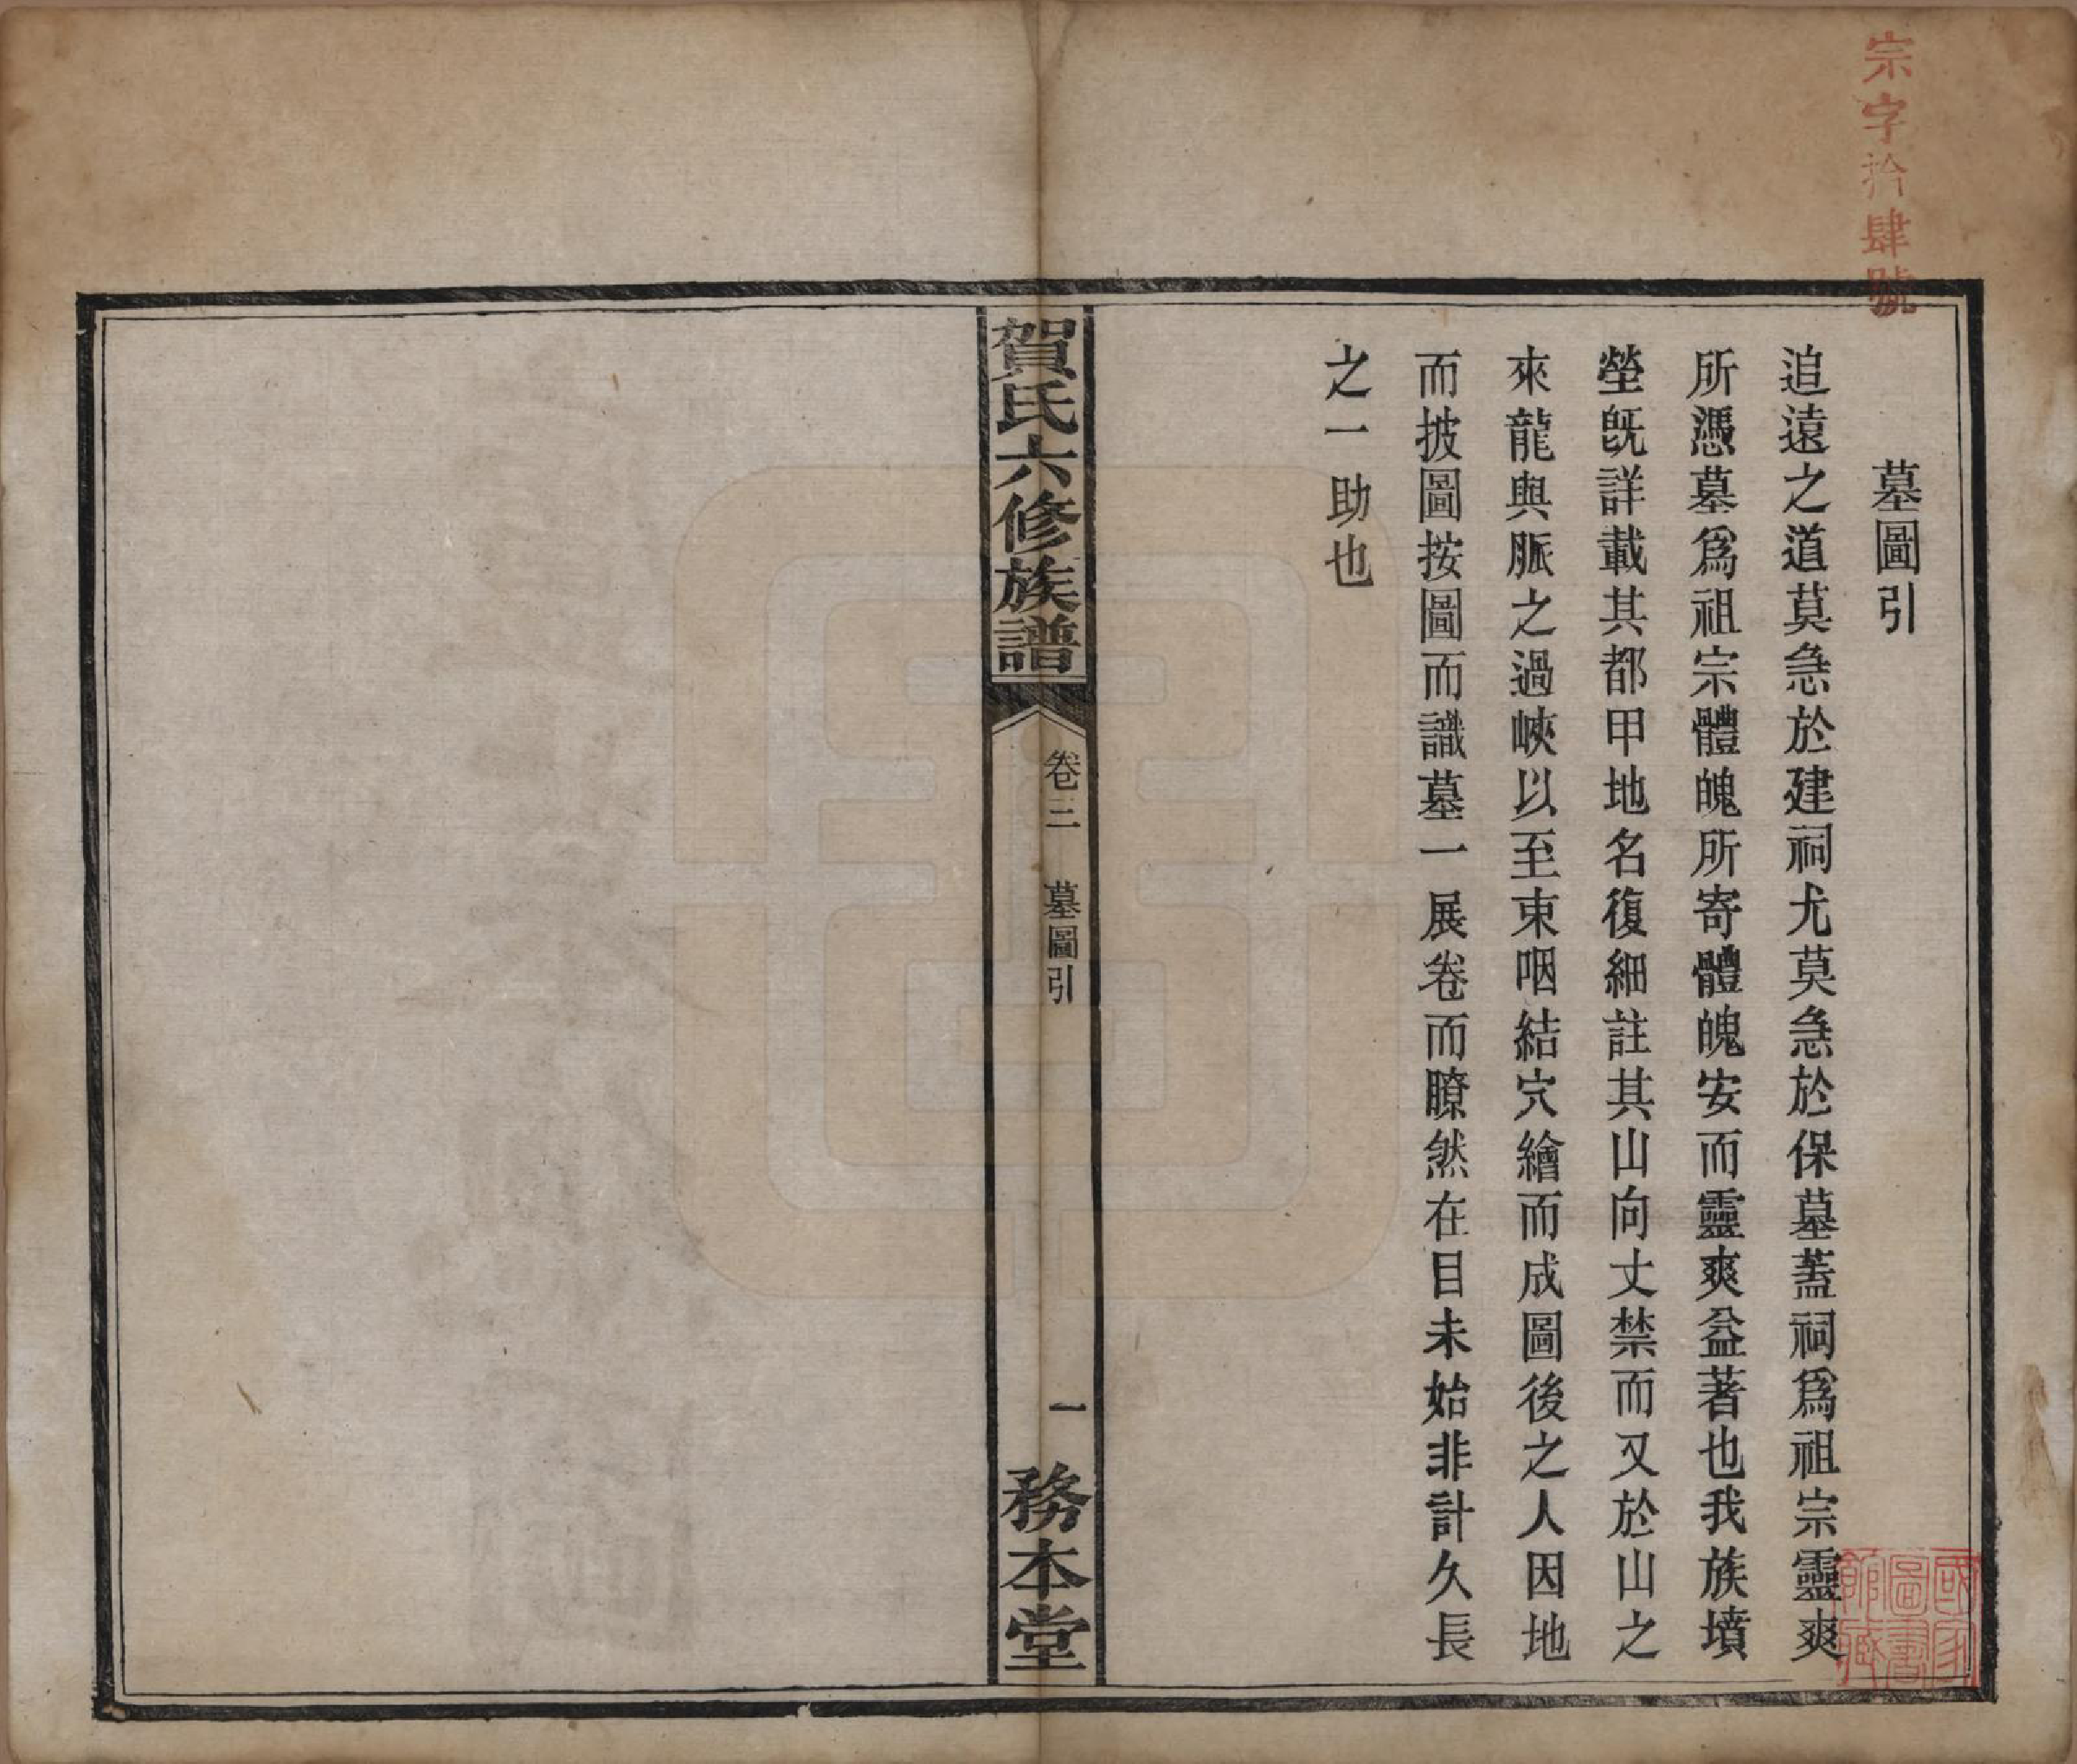 宗字拾肆號
墓圖引
追遠之道莫急於建祠尤莫急於保墓蓋祠爲祖宗靈爽
所憑墓爲祖宗體魄所寄體魄安而靈爽益著也我族墳
塋旣詳載其都甲地名復細註其山向丈禁而又於山之
來龍與脈之過峽以至束咽結穴繪而成圖後之人因地
而披圖按圖而識墓一展卷而瞭然在目未始非計久長
之一助也
國家圖書館藏
賀氏六修族譜
卷三 墓圖引
一
務本堂